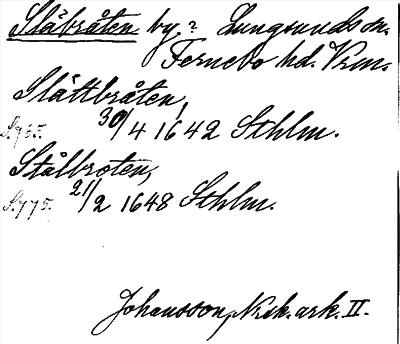 Slåbråten by? Lungsunds sn.
Fernebo hd. Vrm.
Slåttbråten,
S. 765. 30/4 1642 Sthlm.
Stålbroten,
S. 775. 21/2 1648 Sthlm.
Johansson, Nrk. ark. II.